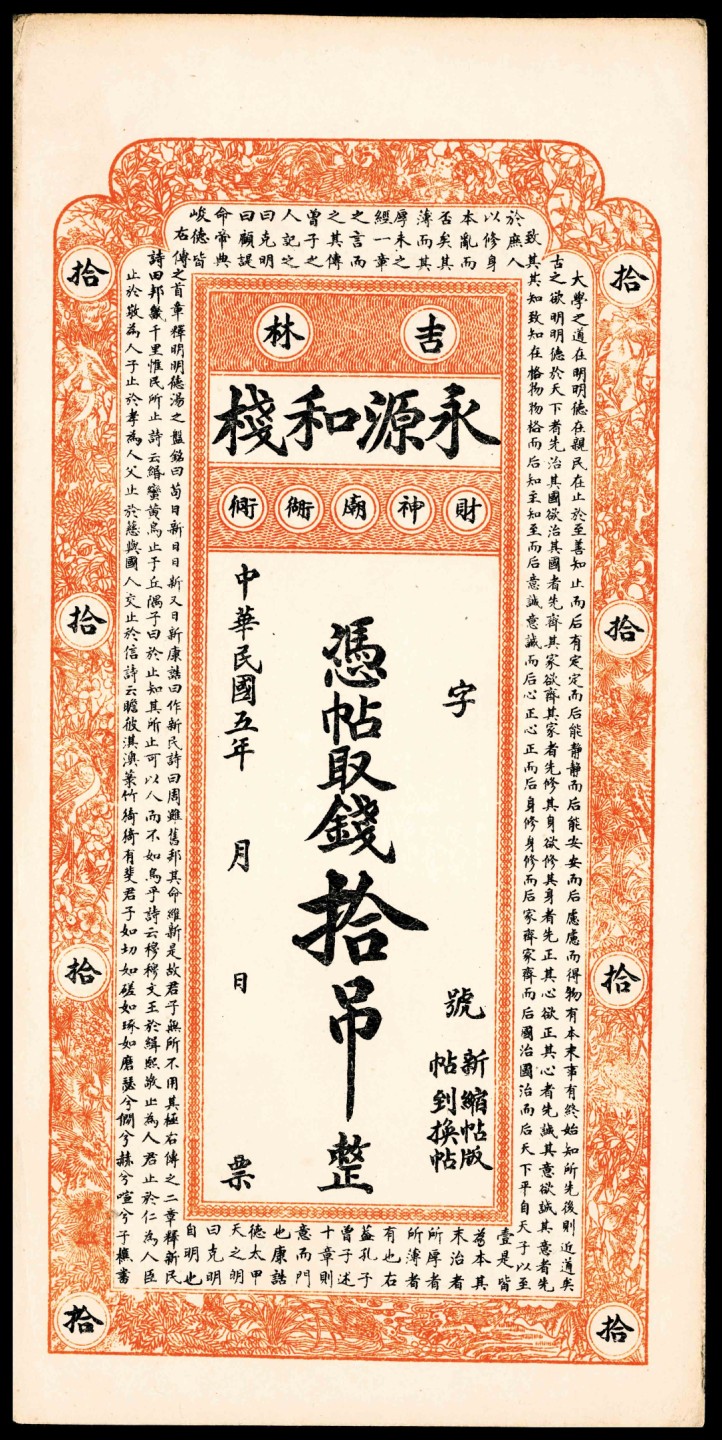 吉林
永源和棧
財神廟衚衕
字 號
新縮帖版
帖到換帖
憑帖取錢拾吊整
中華民國五年 月 日 票
拾
拾
拾
拾
拾
拾
拾
拾
大學之道在明明德在親民在止於至善知止而后有定定而后能靜靜而后能安安而后慮慮而得物有本末事有終始知所先後則近道矣
古之欲明明德於天下者先治其國欲治其國者先齊其家欲齊其家者先修其身欲修其身者先正其心欲正其心者先誠其意欲誠其意者先
致其其知致知在格物物格而后知至知至而后意誠意誠而后心正心正而后身修身修而后家齊家齊而后國治國治而后天下平自天子以至
於庶人
壹是皆
以修身
為本其
本亂而
末治者
否矣其
所厚者
薄而其
所薄者
厚未之
有也右
經一章
蓋孔子
之言而
曾子述
之其傳
十章則
曾子之
意而門
人記之
也康誥
曰克明
德太甲
曰顧諟
天之明
命帝典
曰克明
峻德皆
自明也
右傳之首章釋明明德湯之盤銘曰苟日新日日新又日新康誥曰作新民詩曰周雖舊邦其命維新是故君子無所不用其極右傳之二章釋新民
詩曰邦畿千里惟民所止詩云緡蠻黃鳥止于丘隅子曰於止知其所止可以人而不如鳥乎詩云穆穆文王於緝熙敬止為人君止於仁為人臣
止於敬為人子止於孝為人父止於慈與國人交止於信詩云瞻彼淇澳菉竹猗猗有斐君子如切如磋如琢如磨瑟兮僩兮赫兮喧兮子樵書